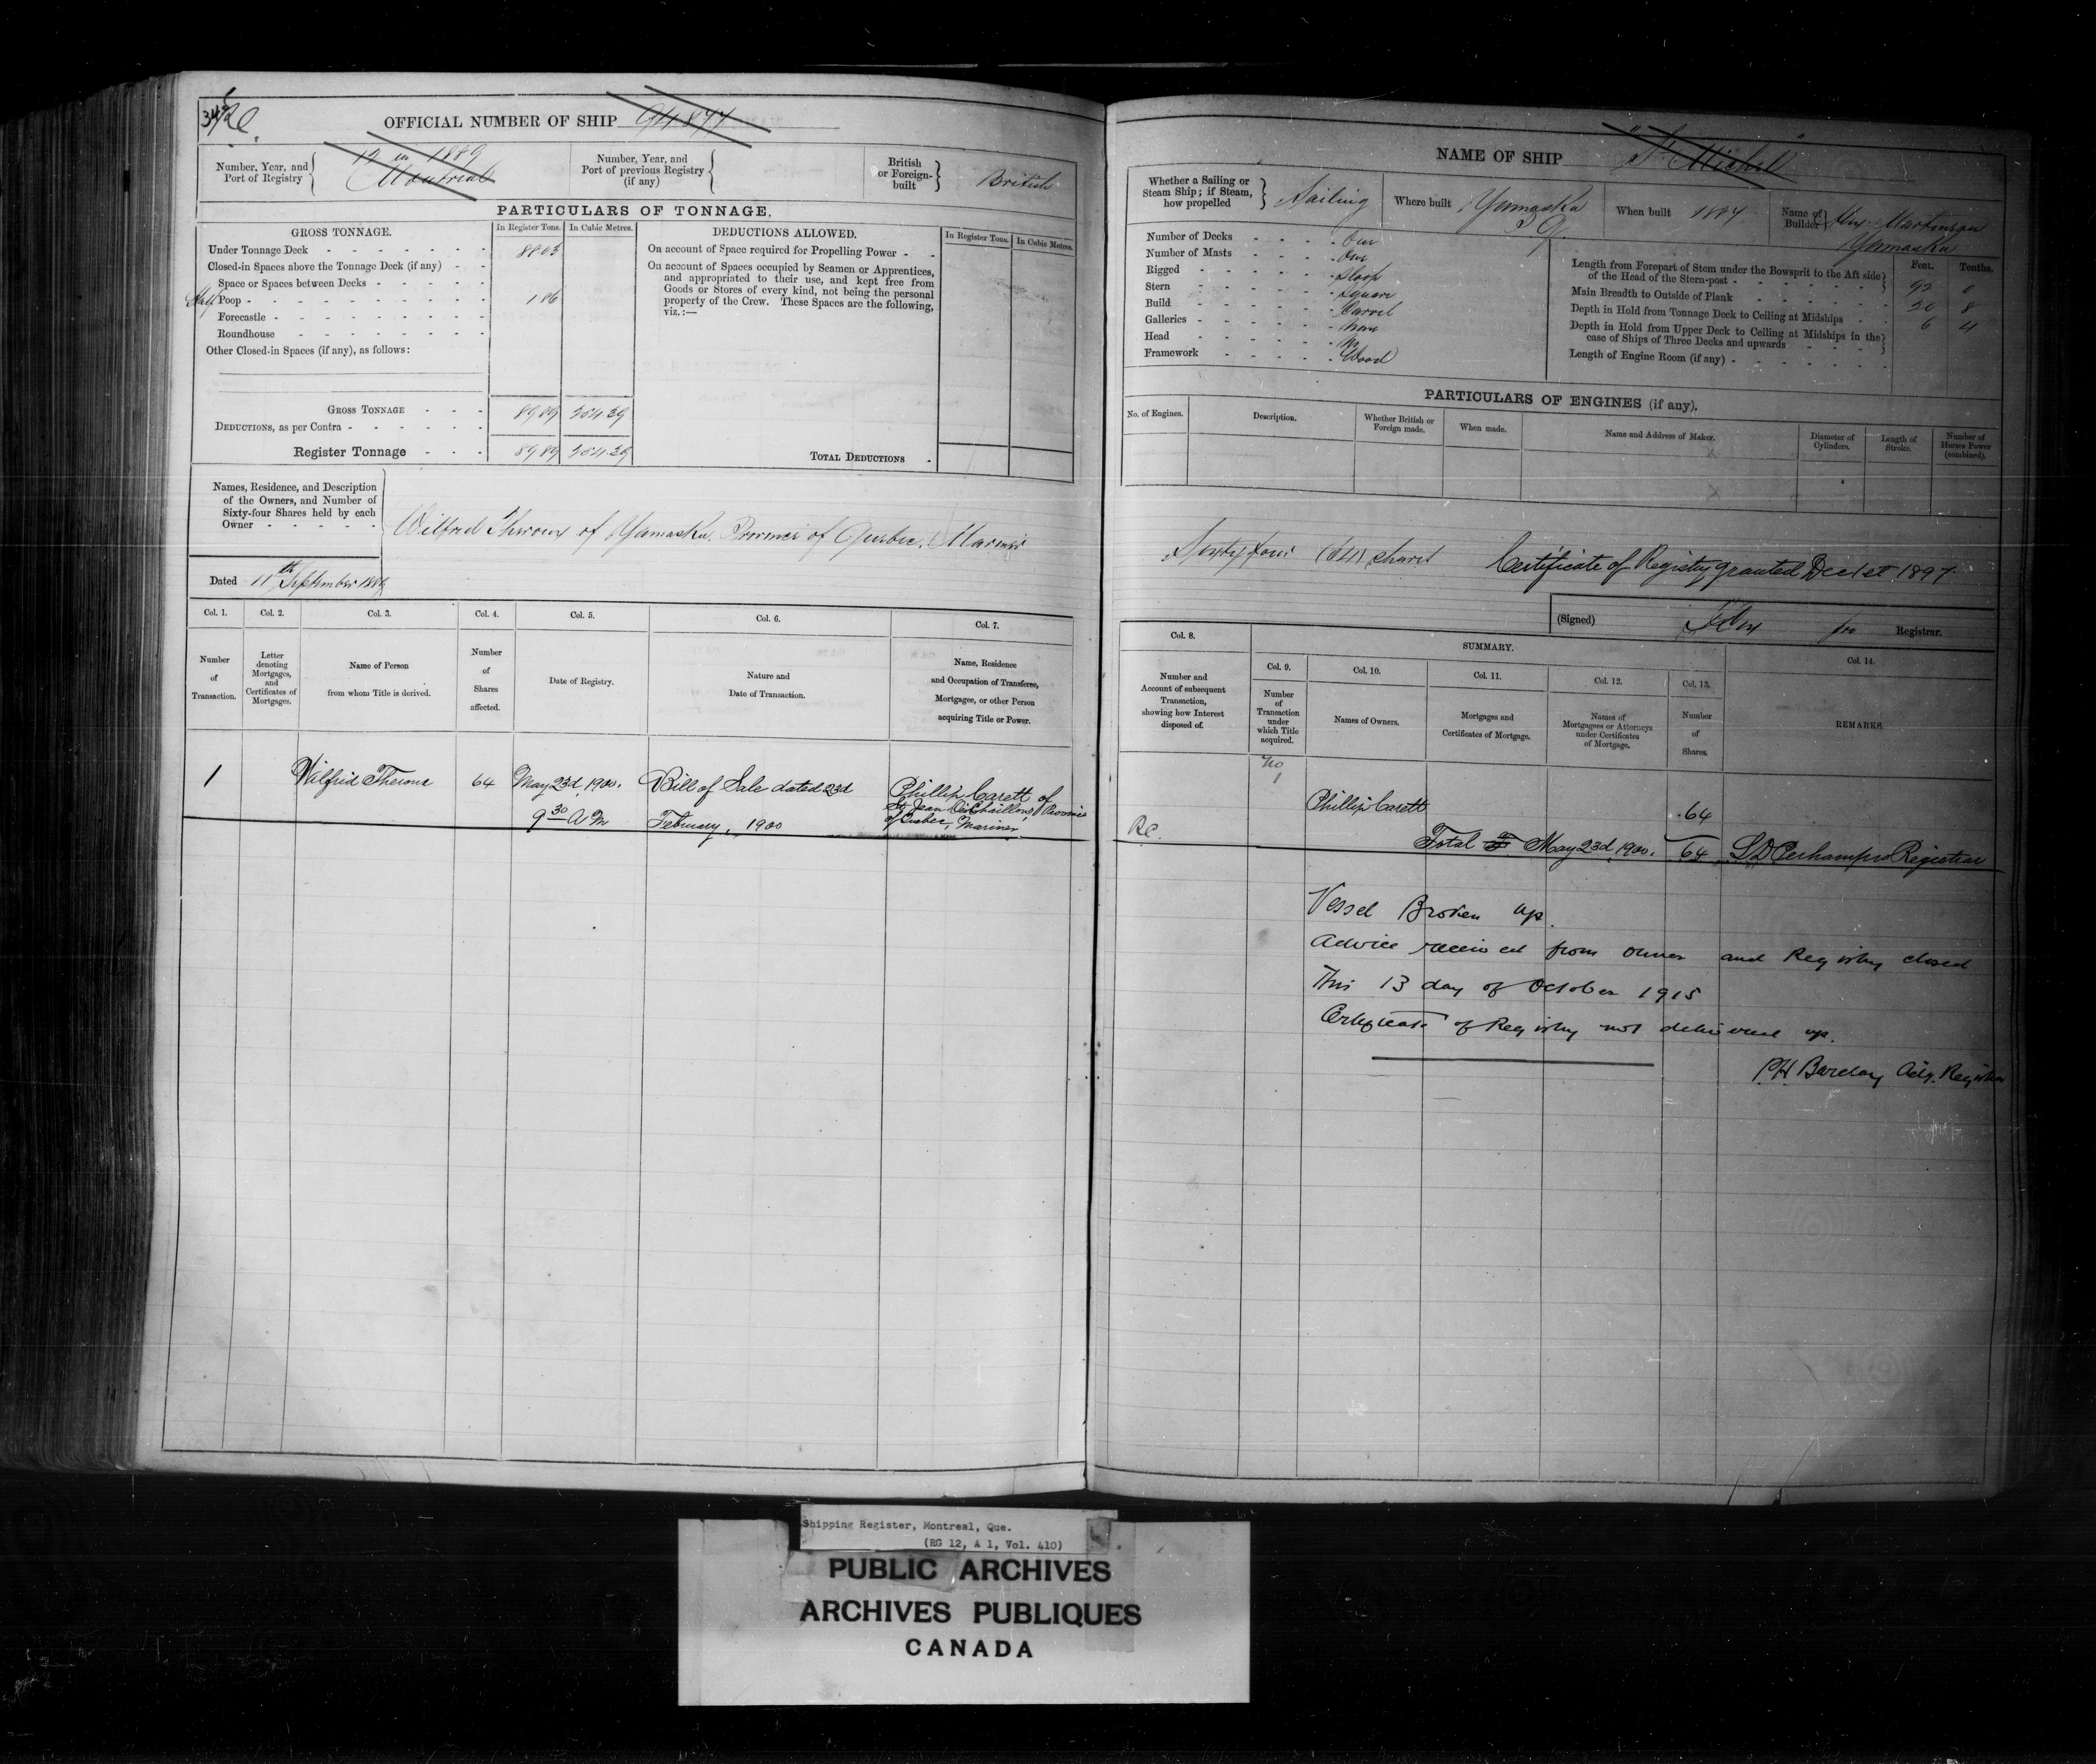 OFFICIAL NUMBER OF SHIP
Number, Year, and Port of Registry
12 in 1889
Montreal
Number, Year, and Port of previous Registry (if any)
British or Foreign-built
British
PARTICULARS OF TONNAGE.
GROSS TONNAGE.
In Register Tons.
In Cubic Metres.
Under Tonnage Deck
Closed-in Spaces above the Tonnage Deck (if any)
Space or Spaces between Decks
Half Poop
1 86
Forecastle
Roundhouse
Other Closed-in Spaces (if any), as follows:
GROSS TONNAGE
89 89
254.39
DEDUCTIONS, as per Contra
Register Tonnage
89 89
254.39
DEDUCTIONS ALLOWED.
In Register Tons.
In Cubic Metres.
On account of Space required for Propelling Power
On account of Spaces occupied by Seamen or Apprentices,
and appropriated to their use, and kept free from
Goods or Stores of every kind, not being the personal
property of the Crew. These Spaces are the following,
viz.:—
TOTAL DEDUCTIONS
Names, Residence, and Description
of the Owners, and Number of
Sixty-four Shares held by each
Owner
Wilfrid Theroux of Yamaska, Province of Quebec, Mariner
Dated 11th September
Col. 1.
Col. 2.
Col. 3.
Col. 4.
Col. 5.
Col. 6.
Col. 7.
Number of Transaction.
Letter denoting Mortgages, and Certificates of Mortgages.
Name of Person from whom Title is derived.
Number of Shares affected.
Date of Registry.
Nature and Date of Transaction.
Name, Residence and Occupation of Transferee, Mortgagee, or other Person acquiring Title or Power.
1
Wilfrid Theroux
64
May 23d, 1900.
9 30 A M
Bill of Sale dated 23d
February, 1900
Phillip Carett of
St Jean Des Chaillons, Province
of Quebec, Mariner
NAME OF SHIP
St Michel
Whether a Sailing or Steam Ship; if Steam, how propelled
Sailing
Where built
Yamaska
P Q.
When built
Name of Builder
Yamaska
Number of Decks
One
Number of Masts
One
Rigged
Sloop
Stern
Square
Build
Carvel
Galleries
None
Head
No
Framework
Wood
Feet.
Tenths.
Length from Forepart of Stem under the Bowsprit to the Aft side of the Head of the Stern-post
92 0
Main Breadth to Outside of Plank
20 8
Depth in Hold from Tonnage Deck to Ceiling at Midships
6 4
Depth in Hold from Upper Deck to Ceiling at Midships in the case of Ships of Three Decks and upwards
Length of Engine Room (if any)
PARTICULARS OF ENGINES (if any).
No. of Engines.
Description.
Whether British or Foreign made.
When made.
Name and Address of Maker.
Diameter of Cylinders.
Length of Stroke.
Number of Horses Power (combined).
Sixty four (64) shares
Certificate of Registry granted Dec 1st 1897
(Signed)
pro
Registrar.
Col. 8.
SUMMARY.
Col. 9.
Col. 10.
Col. 11.
Col. 12.
Col. 13.
Col. 14.
Number and Account of subsequent Transaction, showing how Interest disposed of.
Number of Transaction under which Title acquired.
Names of Owners.
Mortgages and Certificates of Mortgage.
Names of Mortgagees or Attorneys under Certificates of Mortgage.
Number of Shares.
REMARKS.
No
1
Phillip Carett
64
R C.
Total May 23d, 1900. 64 L D Perham pro Registrar
Vessel Broken up.
Advice received from owner and Registry closed
This 13 day of October 1915
Certificate of Registry not delivered up.
P.H. Barclay Actg. Registrar
Shipping Register, Montreal, Que.
(RG 12, A 1, Vol. 410)
PUBLIC ARCHIVES
ARCHIVES PUBLIQUES
CANADA